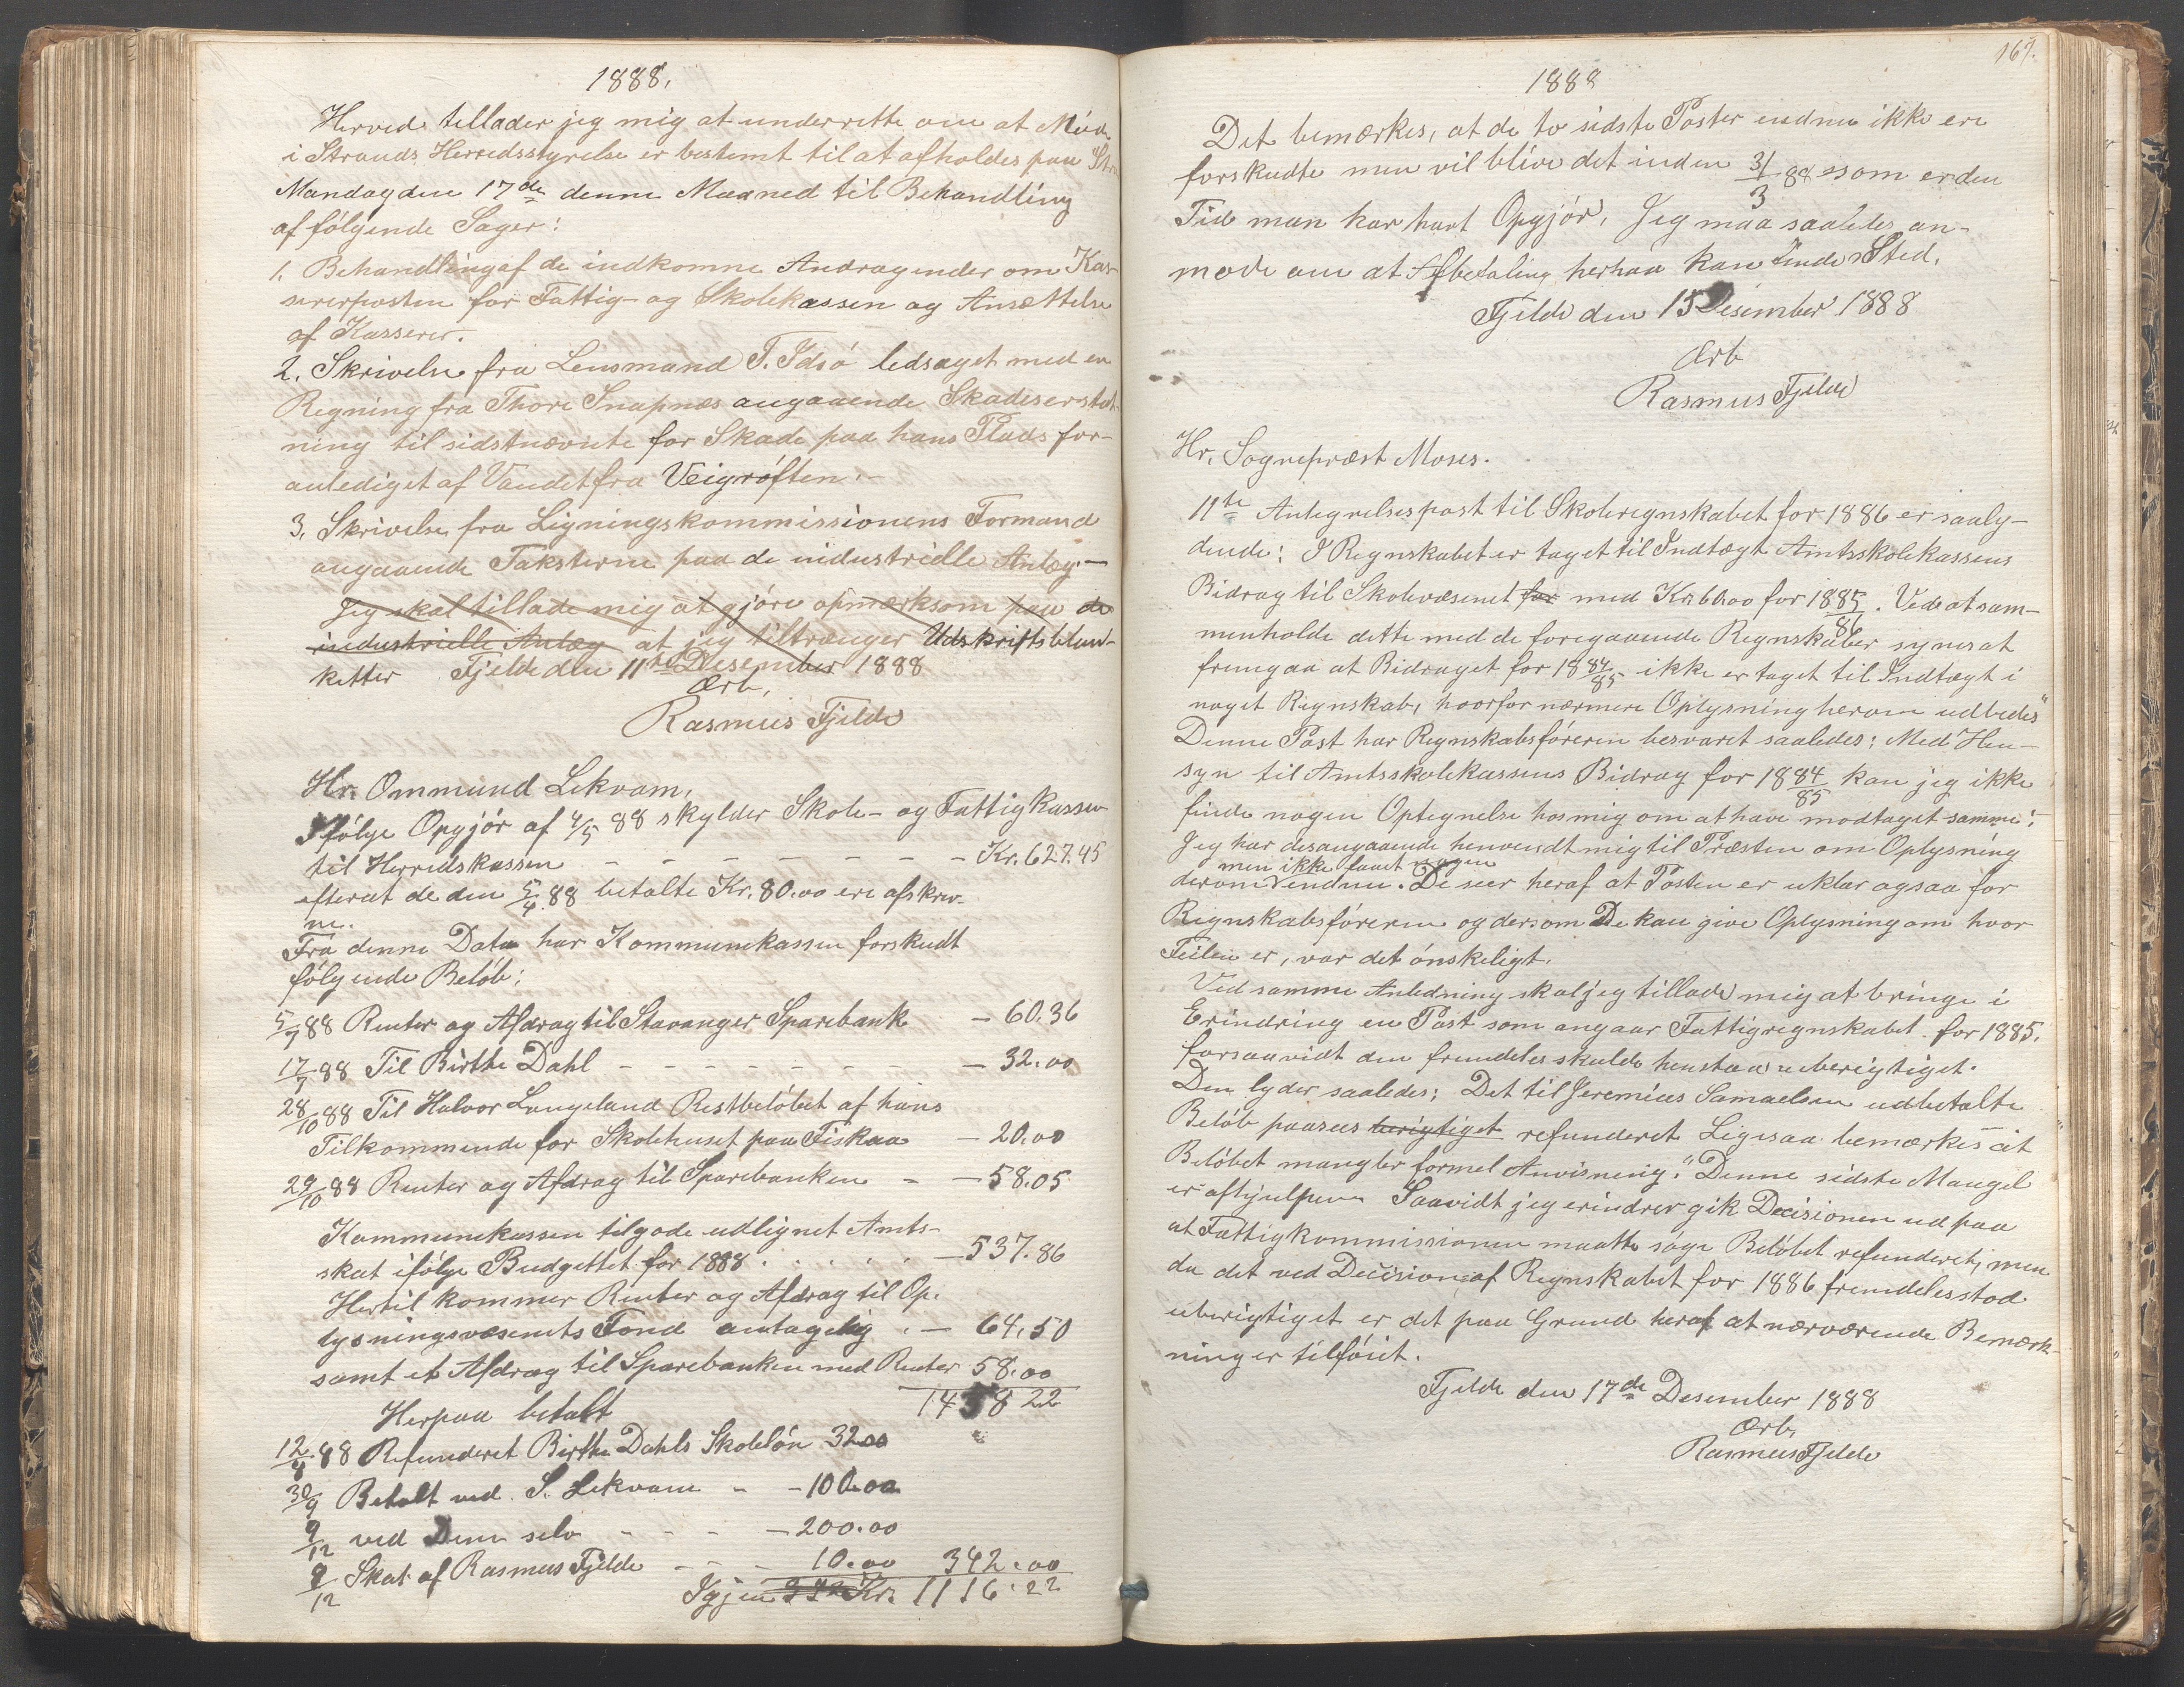 1888.
Herved tillader jeg mig at underrette om at Møde
i Strands Herredsstyrelse er bestemt til at afholdes paa
Mandag den 17de denne Maaned til Behandling
af følgende Sager:
1. Behandling af de indkomne Andragender om Kas-
sererposten for Fattig- og Skolekassen og Ansættelse
af Kasserer.
2. Skrivelse fra Lensmand T. Idsö ledsaget med en
Regning fra Thore Snapnæs angaaende Skadeserstat-
ning til sidstnævnte for Skade paa hans Plads for-
anlediget af Vandet fra Veigröften.-
3. Skrivelse fra Ligningskommissionens Formand
angaaende Taksterne paa de industrielle Anlæg.-
Jeg skal tillade mig at gjöre opmærksom paa de
industrielle Anlæg at jeg tiltrænger Udskriftsblan-
ketter Fjelde den 11te Desember 1888
Ærb,
Rasmus Fjelde
Hr. Ommund Lekvam,
Ifölge Opgjör af 4/5 88 skylder Skole- og Fattigkassen
til Herredskassen - - - - - - - Kr. 627.45
efterat de den 5/4 88 betalte Kr. 80.00 ere afskrev-
ne.
Fra denne Dato har Kommunekassen forskudt
fölgende Belöb:
5/7 88 Renter og Afdrag til Stavanger Sparebank - 60.36
17/7 88 Til Birthe Dahl - - - - - - - 32.00
28/10 88 Til Halvor Langeland Restbelöbet af hans
Tilkommende for Skolehuset paa Fiskaa - 20.00
29/10 88 Renter og Afdrag til Sparebanken - - 58.05
Kommunekassen tilgode udlignet Amts-
skat ifölge Budgettet for 1888 . . . . . - 537.86
Hertil kommer Renter og Afdrag til Op-
lysningsvæsenets Fond antagelig . - 64.50
samt et Afdrag til Sparebanken med Renter 58.00
1458 22
Herpaa betalt
12/8 88 Refunderet Birthe Dahls Skolelön 32.00
30/9 Betalt ved S. Lekvam - - 100.00
9/12 ved Dem selv - - - - 200.00
9/12 Skat af Rasmus Fjelde - - - 10.00 342.00
Igjen 342 Kr. 1116.22
167.
1888
Det bemærkes, at de to sidste Poster endnu ikke ere
forskudte men vil blive det inden 31/3 88 som er den
Tid man har havt Opgjör. Jeg maa saaledes an-
mode om at Afbetaling herpaa kan finde Sted.
Fjelde den 15 Desember 1888
Ærb
Rasmus Fjelde
Hr. Sognepræst Moses.
11te Antegnelsespost til Skoleregnskabet for 1886 er saaly-
dende: I Regnskabet er taget til Indtægt Amtsskolekassens
Bidrag til Skolevæsenet for med Kr. 60.00 for 1885/86. Ved at sam-
menholde dette med de foregaaende Regnskaber synes at
fremgaa at Bidraget for 1884/85 ikke er taget til Indtægt i
noget Regnskab, hvorfor nærmere Oplysning herom udbedes"
Denne Post har Regnskabsföreren besvaret saaledes: Med Hen-
syn til Amtsskolekassens Bidrag for 1884/85 kan jeg ikke
finde nogen Optegnelse hos mig om at have modtaget samme".
Jeg har desangaaende henvendt mig til Præsten om Oplysning
men ikke faaet nogen
derom endnu. De seer heraf at Posten er uklar ogsaa for
Regnskabsföreren og dersom De kan give Oplysning om hvor
Feilen er, var det önskeligt.
Ved samme Anledning skal jeg tillade mig at bringe i
Erindring en Post som angaar Fattigregnskabet for 1885.
forsaavidt den fremdeles skulde henstaa uberigtiget.
Den lyder saaledes: Det til Jeremias Samuelsen udbetalte
Belöb paasees berigtiget refunderet Ligesaa bemærkes at
Belöbet mangler formel Anvisning." Denne sidste Mangel
er afhjulpen Saavidt jeg erindrer gik Decisionen ud paa
at Fattigkommissionen maatte söge Belöbet refunderet, men
da det ved Decision af Regnskabet for 1886 fremdeles stod
uberigtiget er det paa Grund heraf at nærværende Bemærk-
ning er tilföiet.
Fjelde den 17de Desember 1888
Ærb,
Rasmus Fjelde